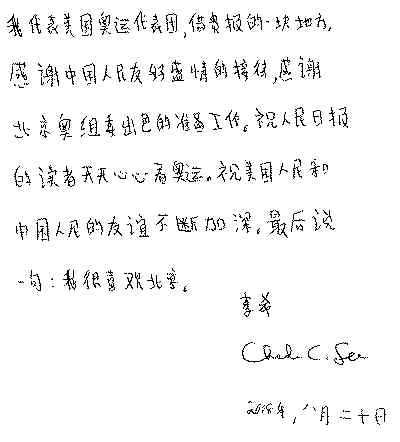 我代表美国奥运代表团,借贵报的一块地方,
感谢中国人民友好盛情的接待,感谢
北京奥组委出色的准备工作。祝人民日报
的读者天天心心看奥运。祝美国人民和
中国人民的友谊不断加深。最后说
一句:我很喜欢北京。
李
C. Lee
八月二十日